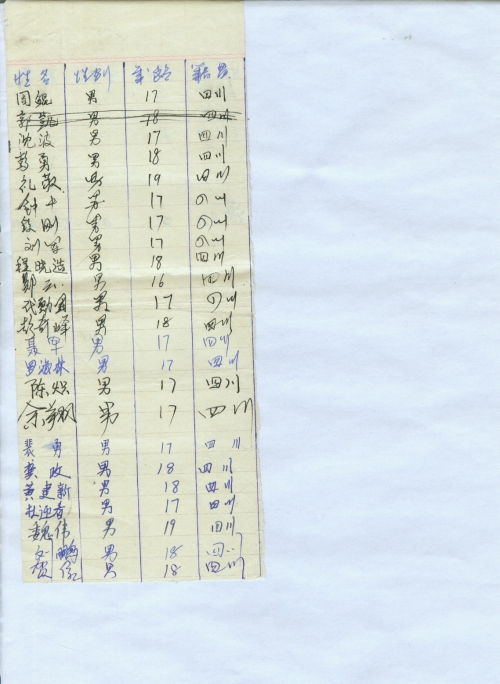 姓名 性别 年龄 籍贯
周鲲 男 17 四川
男 18 四川
沈波 男 17 四川
勇 男 18 四川
礼敬 男 19 四川
钟 男 17 四川
刚 男 17 四川
刘军 男 17 四川
程晓浩 男 18 四川
郑云 男 16 四川
武勤国 男 17 四川
彭奇峰 男 18 四川
聂早 男 17 四川
罗诚林 男 17 四川
陈炽 男 17 四川
余翔 男 17 四川
裴勇 男 17 四川
龚政 男 18 四川
黄建新 男 18 四川
杜迎春 男 17 四川
魏伟 男 19 四川
鹏 男 18 四川
贺 男 18 四川